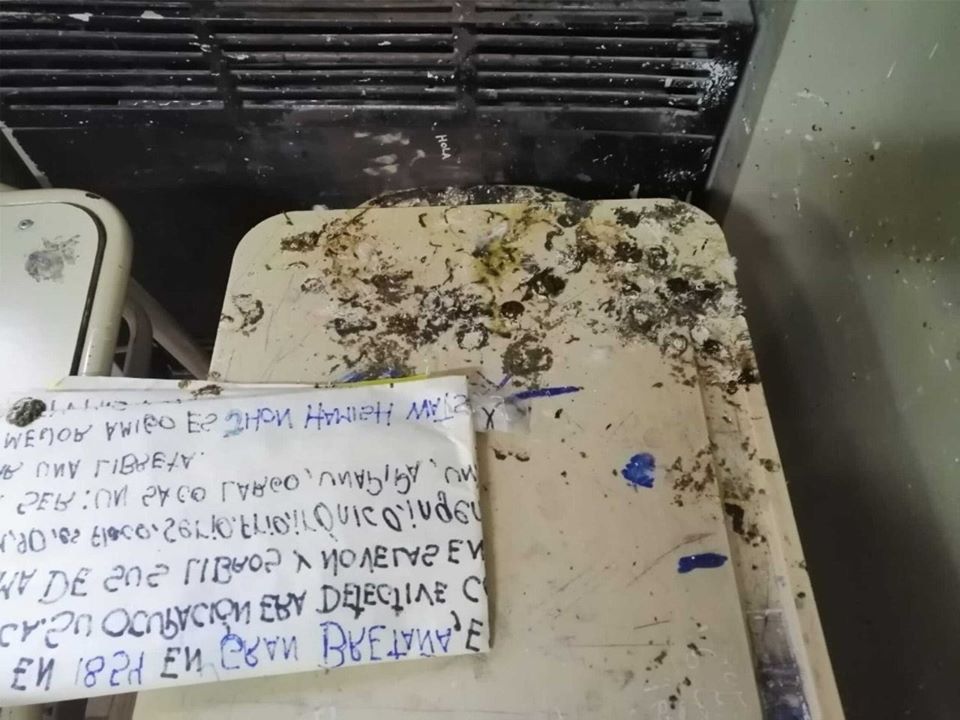 HOLA
EN 1854 EN GRAN BRETAÑA, E
CA. SU OCUPACIÓN ERA DETECTIVE C
MA DE SUS LIBROS Y NOVELAS EN
es flaco. serio. frio. irónico. ingen
SER: UN SACO LARGO, UNA PIPA, UN
R UNA LIBRETA.
MEJOR AMIGO ES JHON HAMISH WATS Y